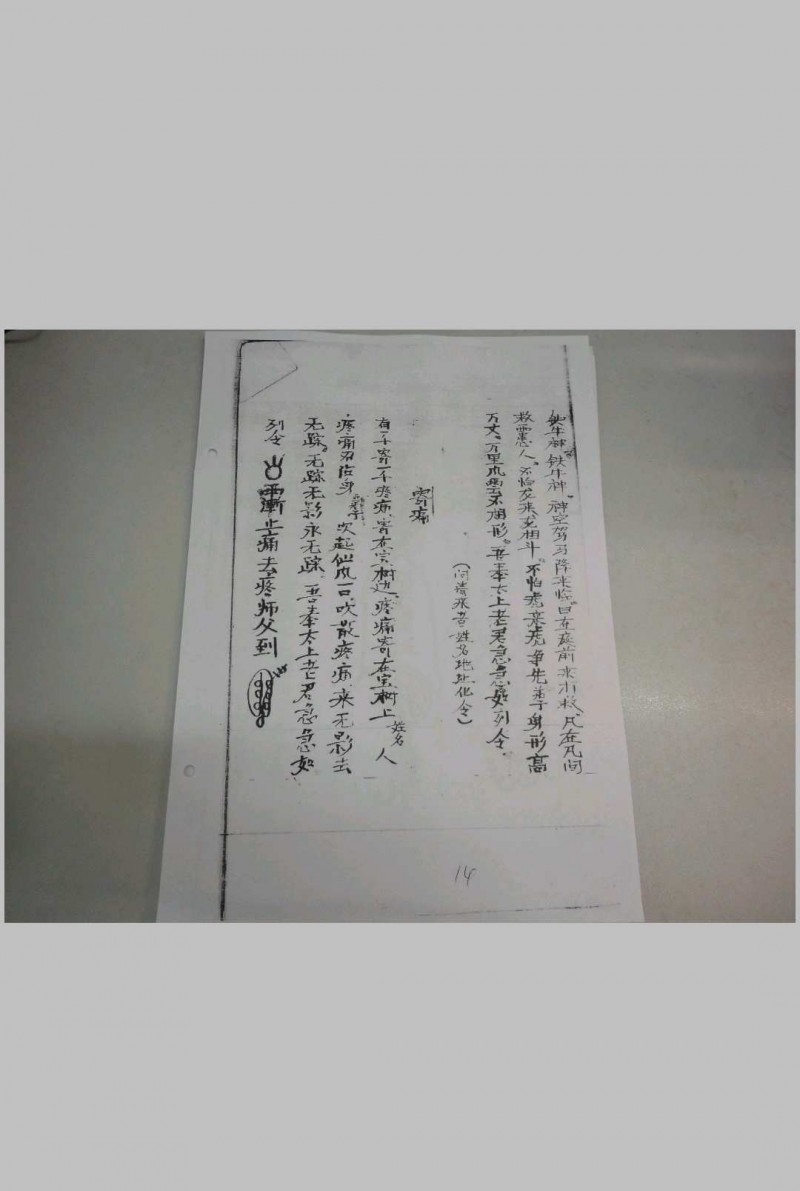 铁牛神。铁牛神、神空驾马降来临。日在坛前来小救、凡在凡间
救恶人。不怕龙来龙相斗。不怕虎来虎争先弟子身形高
万丈。万里风云不相形。吾奉太上老君急急如列令。
(问清来者姓名地址化令)
寄痛
有一千寄一千疼痛、寄在宝树边、疼痛寄在宝树上 姓名 人
疼痛 身 吹起仙风一口、吹散疼痛、来无影去
无踪。无踪无影永无踪、吾奉太上老君急急如
列令 止痛去疼师父到
14